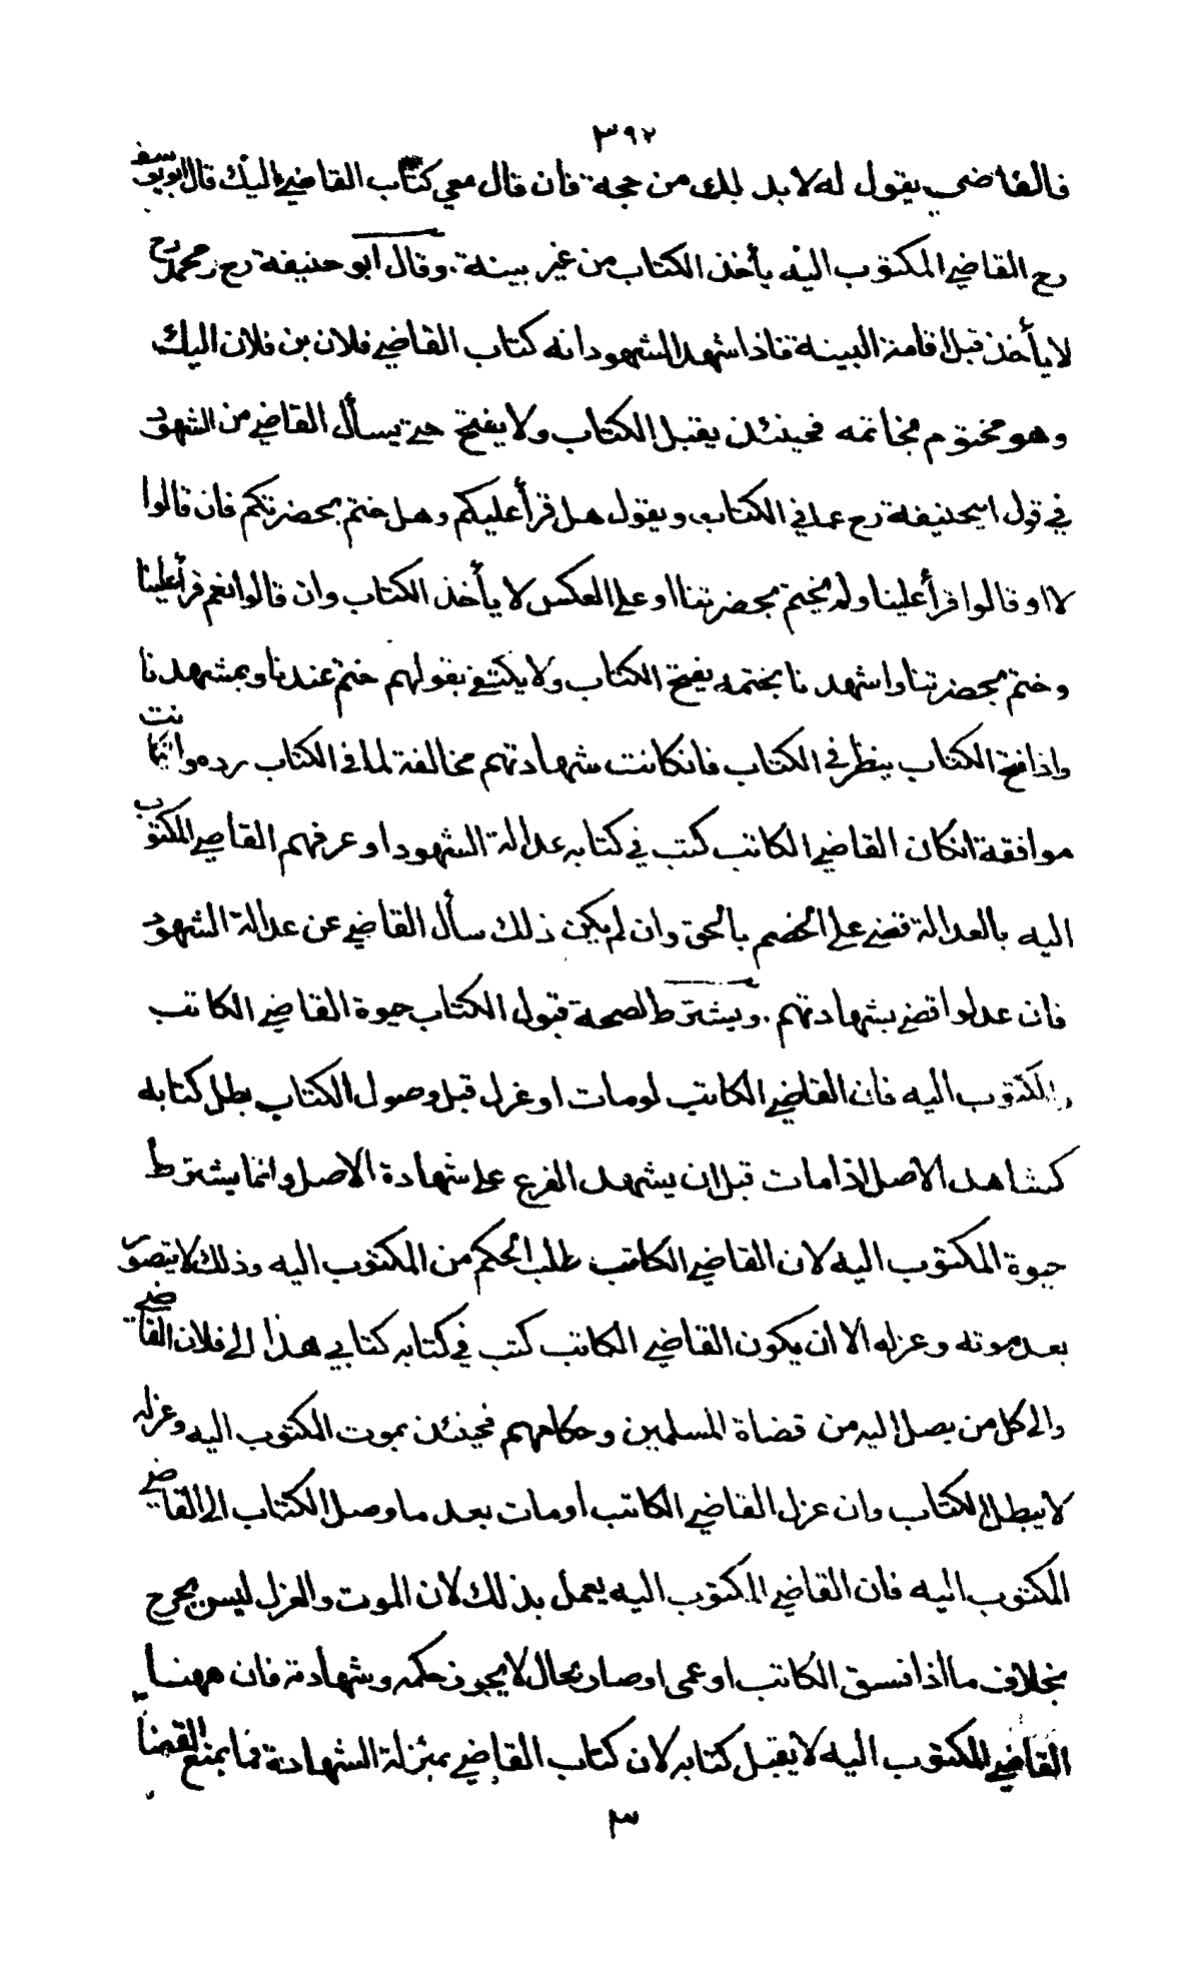 ٣٩٢
فالقاضي يقول له لا بد لك من حجة فان قال معي كتاب القاضي اليك قال ابو يوسف
رح القاضي المكتوب اليه يأخذ الكتاب من غير بينة. وقال ابو حنيفة رح ومحمد رح
لا يأخذ قبل اقامة البينة فاذا شهد الشهود انه كتاب القاضي فلان بن فلان اليك
وهو مختوم بخاتمه فحينئذ يقبل الكتاب ولا يفتح حتى يسأل القاضي من الشهود
في قول ابيحنيفة رح عما في الكتاب ويقول هل قرأ عليكم وهل ختم بحضرتكم فان قالوا
لا او قالوا قرأ علينا ولم يختم بحضرتنا او على العكس لا يأخذ الكتاب وان قالوا نعم قرأ علينا
وختم بحضرتنا واشهدنا بختمه يفتح الكتاب ولا يكتفى بقولهم ختم عندنا وبمشهدنا
واذا فتح الكتاب ينظر في الكتاب فانكانت شهادتهم مخالفة لما في الكتاب رده وانكانت
موافقة انكان القاضي الكاتب كتب في كتابه عدالة الشهود او عرفهم القاضي المكتوب
اليه بالعدالة قضى على الخصم بالحق وان لم يكن ذلك سأل القاضي عن عدالة الشهود
فان عدلوا قضى بشهادتهم. ويشترط لصحة قبول الكتاب حيوة القاضي الكاتب
والمكتوب اليه فان القاضي الكاتب لومات او عزل قبل وصول الكتاب بطل كتابه
كشاهد الاصل اذا مات قبل ان يشهد الفرع على شهادة الاصل وانما يشترط
حيوة المكتوب اليه لان القاضي الكاتب طلب الحكم من المكتوب اليه وذلك لا يتصور
بعد موته وعزله الا ان يكون القاضي الكاتب كتب في كتابه كتابي هذا الى فلان القاضي
والى كل من يصل اليه من قضاة المسلمين وحكامهم فحينئذ بموت المكتوب اليه وعزله
لا يبطل الكتاب وان عزل القاضي الكاتب او مات بعد ما وصل الكتاب الى القاضي
المكتوب اليه فان القاضي المكتوب اليه يعمل بذلك لان الموت والعزل ليس بجرح
بخلاف ما اذا فسق الكاتب او عمى او صار بحال لا يجوز حكمه وشهادته فان ههنا
القاضي المكتوب اليه لا يقبل كتابه لان كتاب القاضي بمنزلة الشهادة فما يمنع القضاء